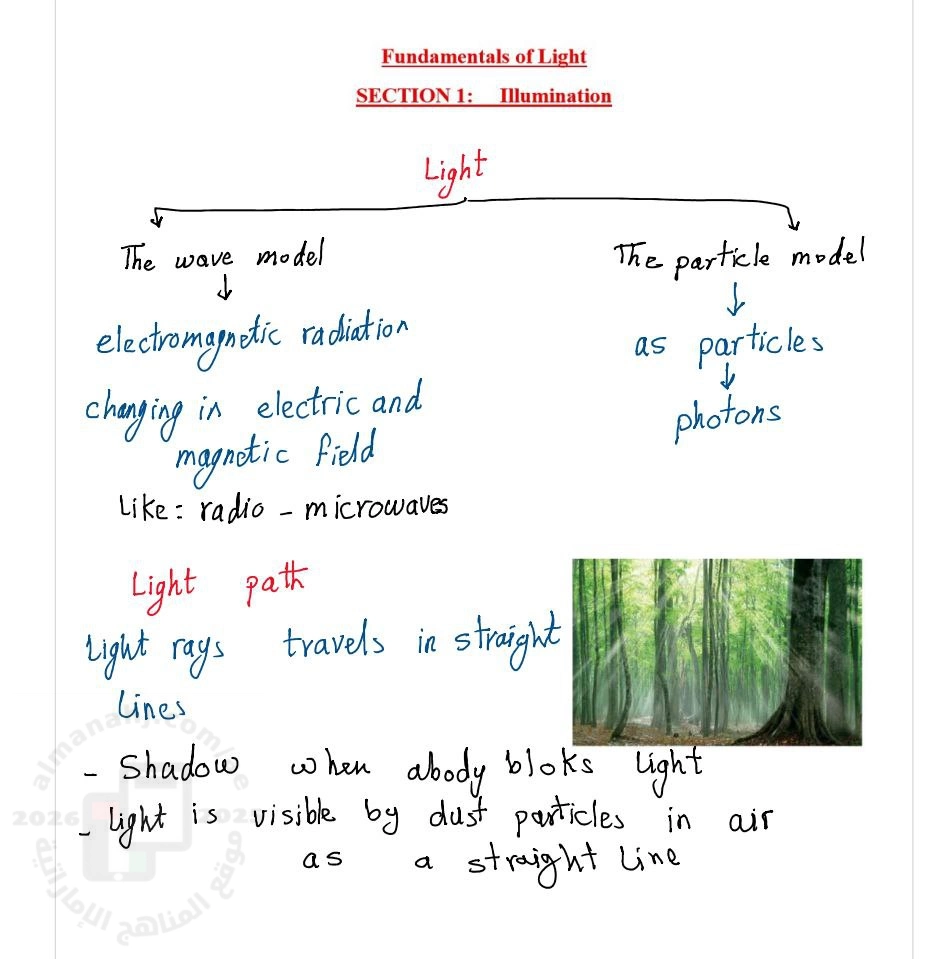 Fundamentals of Light
SECTION 1: Illumination
Light
The wave model
The particle model
electromagnetic radiation
as particles
changing in electric and
magnetic field
photons
Like: radio - microwaves
Light path
Light rays travels in straight
Lines
- Shadow when abody bloks light
- light is visible by dust particles in air
as a straight line
almanahj.com/ae
2026
موقع المناهج الإماراتية